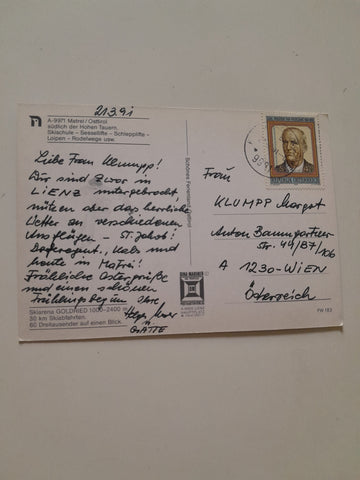 21.3.91
A-9971 Matrei/Osttirol
südlich der Hohen Tauern.
Skischule - Sessellifte - Schlepplifte -
Loipen - Rodelwege usw.
Liebe Frau Klumpp!
Wir sind zwar in
LIENZ untergebracht,
nützen aber das herrliche
Wetter zu verschiedenen
Ausflügen - St. Jakob!
Defereggent., Kals und
heute in Matrei!
Fröhliche Ostergrüße
und einen schönen
Frühlingsbeginn Ihre
GATTE
Skiarena GOLDRIED 1000-2400 m
30 km Skiabfahrten.
60 Dreitausender auf einen Blick.
Schönes Ferienland Osttirol
Frau
KLUMPP Margot
Anton Baumgartner
Str. 44/B7/106
A 1230-WIEN
Österreich
REPUBLIK ÖSTERREICH
PW 183